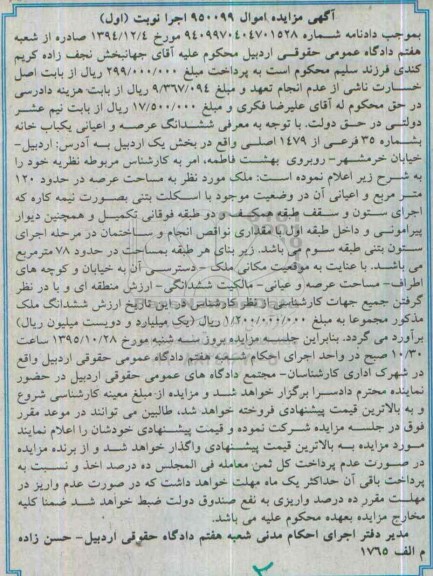 آگهی مزایده اموال ۹۵۰۰۹۹ اجرا نوبت (اول)
بموجب دادنامه شماره ۹۴۰۹۹۷۰۴۰۴۷۰۱۵۲۸ مورخ ۱۳۹۴/۱۲/۴ صادره از شعبه
هفتم دادگاه عمومی حقوقی اردبیل محکوم علیه آقای جهانبخش نجف زاده کریم
کندی فرزند سلیم محکوم است به پرداخت مبلغ ۲۹۹/۰۰۰/۰۰۰ ریال از بابت اصل
خسارت ناشی از عدم انجام تعهد و مبلغ ۹/۳۶۷/۰۹۴ ریال از بابت هزینه دادرسی
در حق محکوم له آقای علیرضا فکری و مبلغ ۱۷/۵۰۰/۰۰۰ ریال از بابت نیم عشر
دولتی در حق دولت. با توجه به معرفی ششدانگ عرصه و اعیانی یکباب خانه
بشماره ۳۵ فرعی از ۱۴۷۹ اصلی واقع در بخش یک اردبیل به آدرس: اردبیل-
خیابان خرمشهر- روبروی بهشت فاطمه، امر به کارشناس مربوطه نظریه خود را
به شرح زیر اعلام نموده است: ملک مورد نظر به مساحت عرصه در حدود ۱۲۰
متر مربع و اعیانی آن در وضعیت موجود با اسکلت بتنی بصورت نیمه کاره که
اجرای ستون و سقف طبقه همکف و دو طبقه فوقانی تکمیل و همچنین دیوار
پیرامونی و داخل طبقه اول با مقداری نواقص انجام و ساختمان در مرحله اجرای
ستون بتنی طبقه سوم می باشد. زیر بنای هر طبقه بمساحت در حدود ۷۸ مترمربع
می باشد. با عنایت به موقعیت مکانی ملک - دسترسی آن به خیابان و کوچه های
اطراف- مساحت عرصه و عیانی- مالکیت ششدانگی- ارزش منطقه ای و با در نظر
گرفتن جمیع جهات کارشناسی از نظر کارشناس در این تاریخ ارزش ششدانگ ملک
مذکور مجموعا به مبلغ ۱/۲۰۰/۰۰۰/۰۰۰ ریال (یک میلیارد و دویست میلیون ریال)
برآورد می گردد. بنابراین جلسه مزایده بروز سه شنبه مورخ ۱۳۹۵/۱۰/۲۸ ساعت
۱۰/۳۰ صبح در واحد اجرای احکام شعبه هفتم دادگاه عمومی حقوقی اردبیل واقع
در شهرک اداری کارشناسان- مجتمع دادگاه های عمومی حقوقی اردبیل در حضور
نماینده محترم دادسرا برگزار خواهد شد و مزایده از مبلغ معینه کارشناسی شروع
و به بالاترین قیمت پیشنهادی فروخته خواهد شد، طالبین می توانند در موعد مقرر
فوق در جلسه مزایده شرکت نموده و قیمت پیشنهادی خودشان را اعلام نمایند
مورد مزایده به بالاترین قیمت پیشنهادی واگذار خواهد شد و از برنده مزایده
در صورت عدم پرداخت کل ثمن معامله فی المجلس ده درصد اخذ و نسبت به
پرداخت باقی آن حداکثر یک ماه مهلت خواهد داشت که در صورت عدم واریز در
مهلت مقرر ده درصد واریزی به نفع صندوق دولت ضبط خواهد شد ضمنا کلیه
مخارج مزایده بعهده محکوم علیه می باشد.
مدیر دفتر اجرای احکام مدنی شعبه هفتم دادگاه حقوقی اردبیل- حسن زاده
م الف ۱۷۶۵
۲